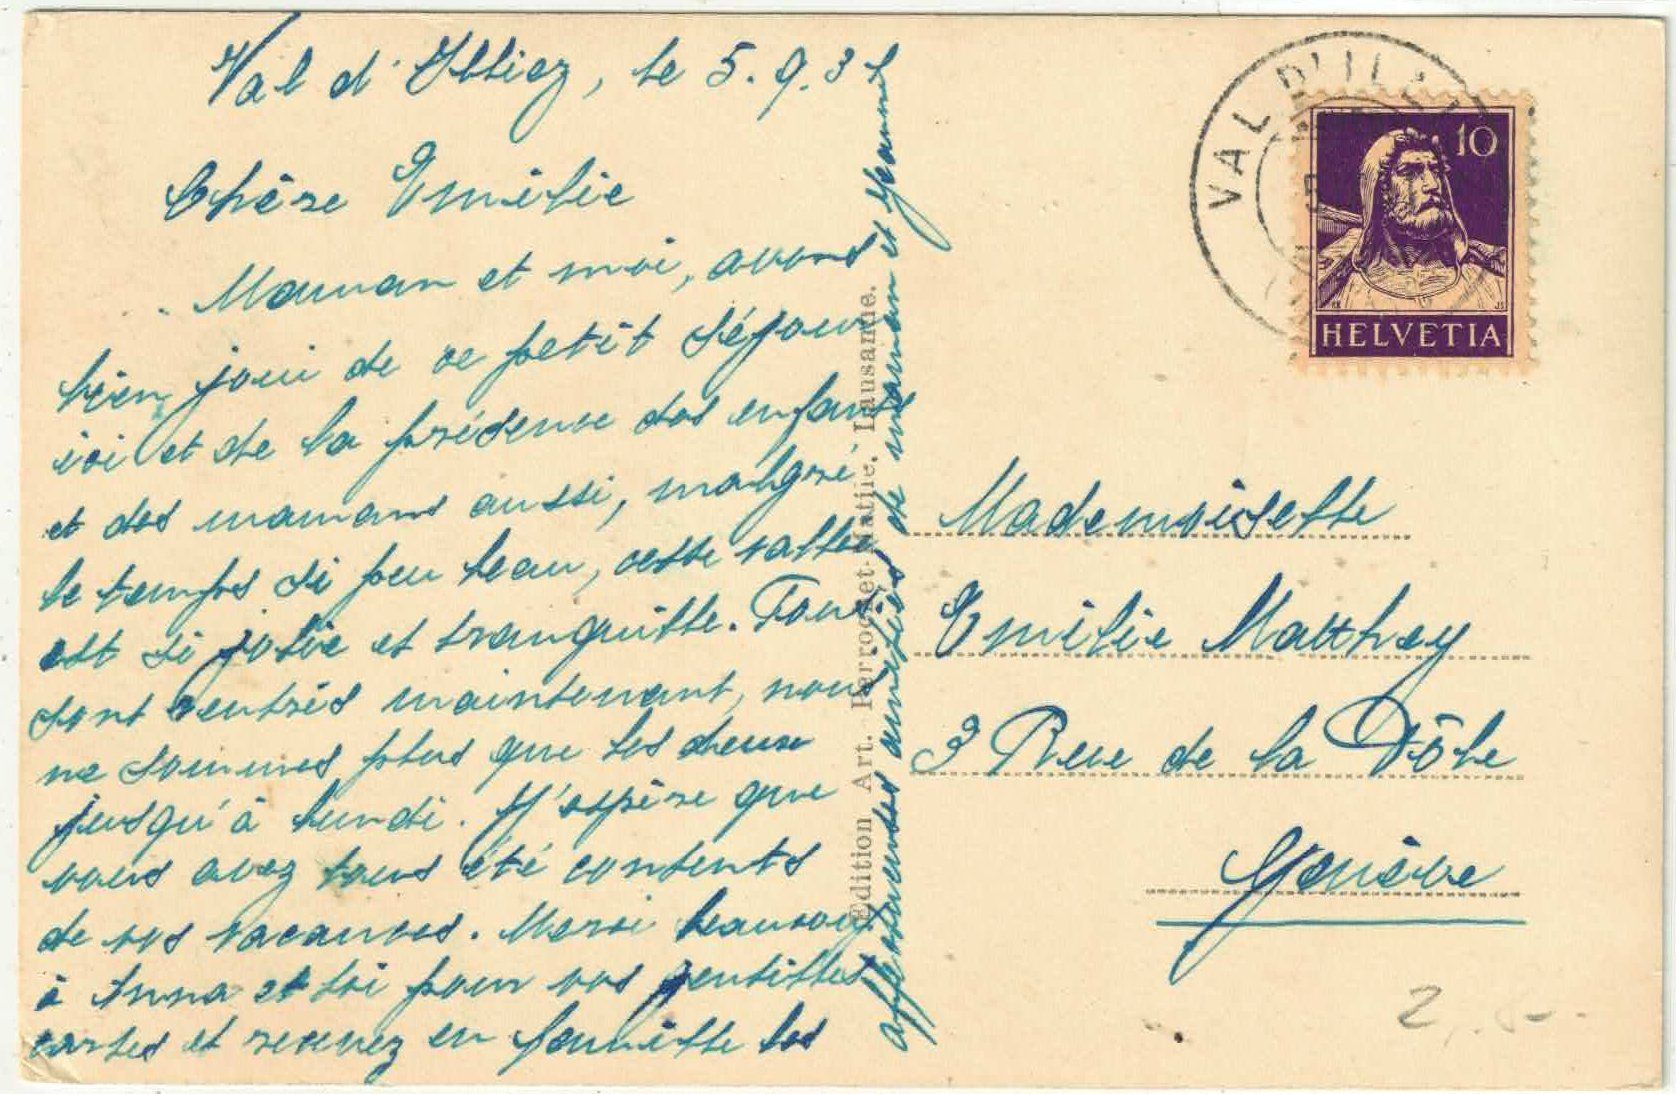 Val d'Illiez, le 5.9.31
Chère Emilie
Maman et moi, avons
bien joui de ce petit séjour
ici et de la présence des enfants
et des mamans aussi, malgré
le temps si peu beau, cette vallée
est si jolie et tranquille. Tous
sont rentrés maintenant, nous
ne sommes plus que les deux
jusqu'à lundi. J'espère que
vous avez tous été contents
de vos vacances. Merci beaucoup
à Anna et toi pour vos gentilles
cartes et recevez en famille les
affectueuses amitiés de maman et Jeanne
Edition Art. Perrochet-Matile, Lausanne.
VAL D'ILL
10
HELVETIA
Mademoiselle
Emilie Matthey
3 Rue de la Dôle
Genève